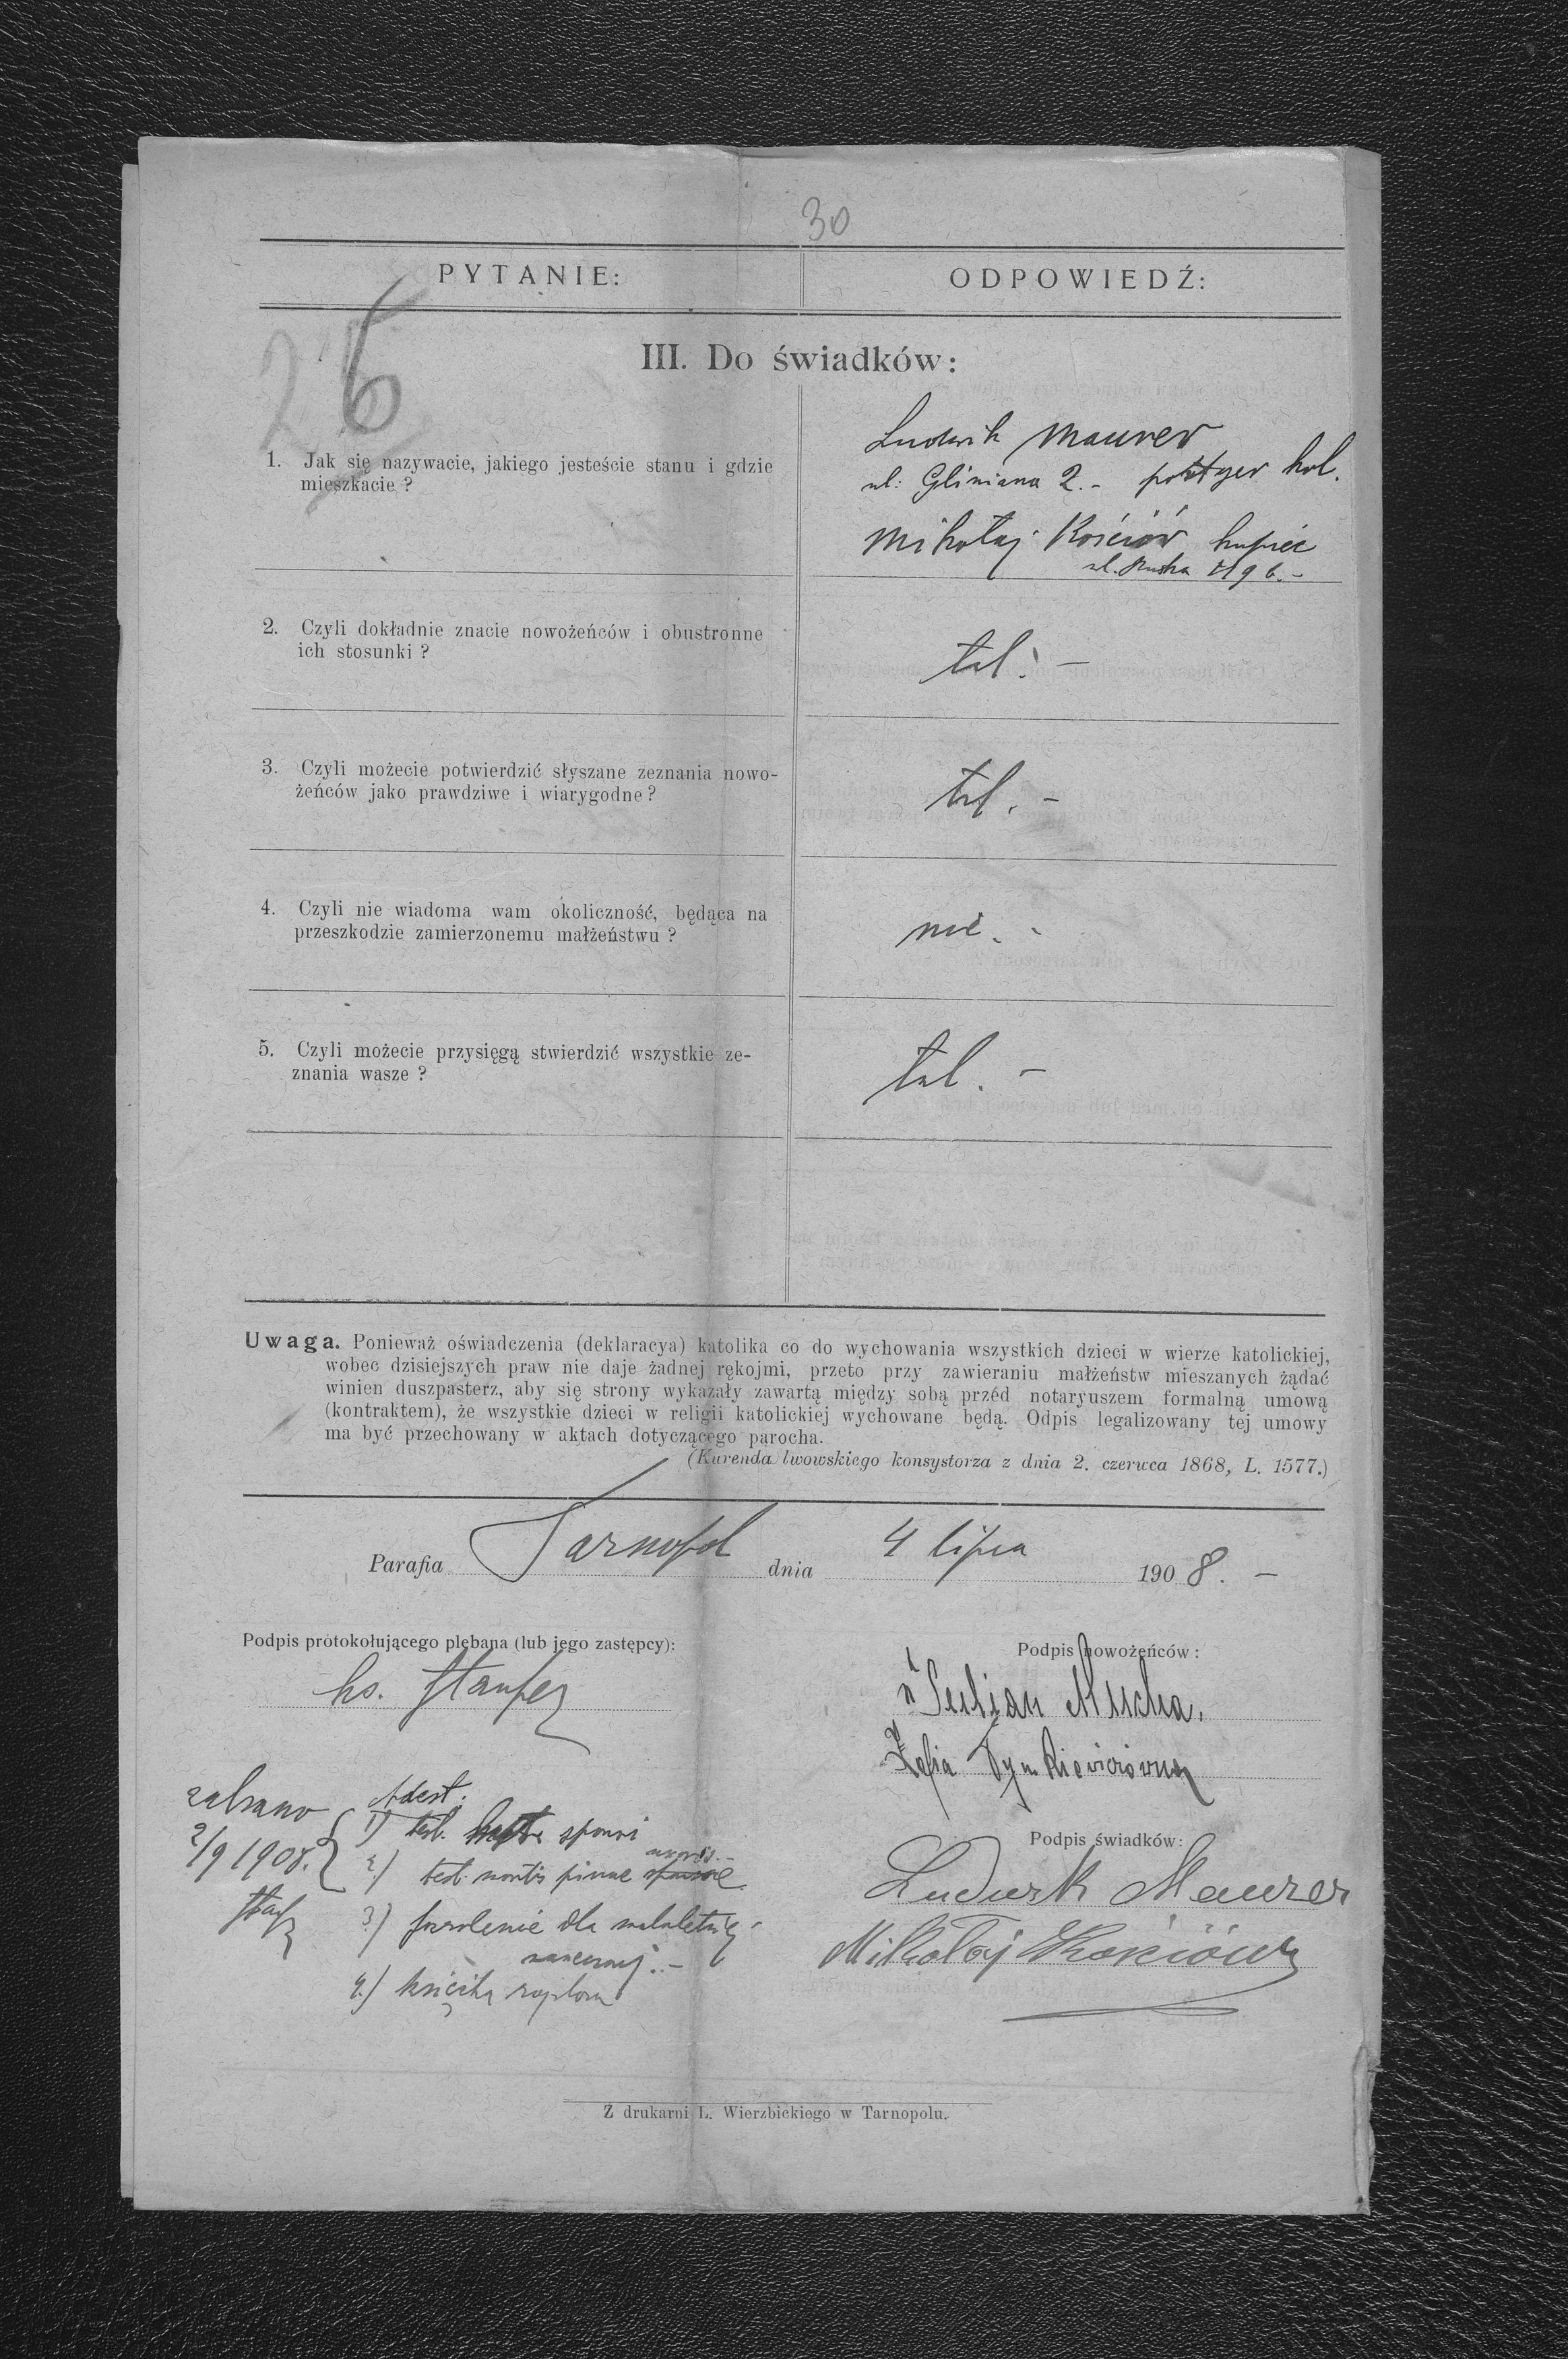 30
PYTANIE:
ODPOWIEDŹ:
26
III. Do świadków:
1. Jak się nazywacie, jakiego jesteście stanu i gdzie
mieszkacie ?
Ludwik Maurer
ul: Gliniana 2.- portyer kol.
Mikołaj Kościów kupiec
ul. Ruska
2. Czyli dokładnie znacie nowożeńców i obustronne
ich stosunki ?
tak. –
3. Czyli możecie potwierdzić słyszane zeznania nowo-
żeńców jako prawdziwe i wiarygodne ?
tak. –
4. Czyli nie wiadoma wam okoliczność, będąca na
przeszkodzie zamierzonemu małżeństwu ?
nie. -
5. Czyli możecie przysięgą stwierdzić wszystkie ze-
znania wasze ?
tak. –
Uwaga. Ponieważ oświadczenia (deklaracya) katolika co do wychowania wszystkich dzieci w wierze katolickiej,
wobec dzisiejszych praw nie daje żadnej rękojmi, przeto przy zawieraniu małżeństw mieszanych żądać
winien duszpasterz, aby się strony wykazały zawartą między sobą przéd notaryuszem formalną umową
(kontraktem), że wszystkie dzieci w religii katolickiej wychowane będą. Odpis legalizowany tej umowy
ma być przechowany w aktach dotyczącego parocha.
(Kurenda lwowskiego konsystorza z dnia 2. czerwca 1868, L. 1577.)
Parafia Tarnopol dnia 4 lipca 1908. –
Podpis protokołującego plebana (lub jego zastępcy):
ks.
Podpis nowożeńców :
Julian Mucha.
Zofia Dymkiewiczówna
zabrano
2/9 1908.
Adest:
1) test. sponsi
2) test. mortis primae
3) pozwolenie dla małoletniej
4.) książka
Podpis świadków:
Ludwik Maurer
Mikołaj Kościów
Z drukarni L. Wierzbickiego w Tarnopolu.